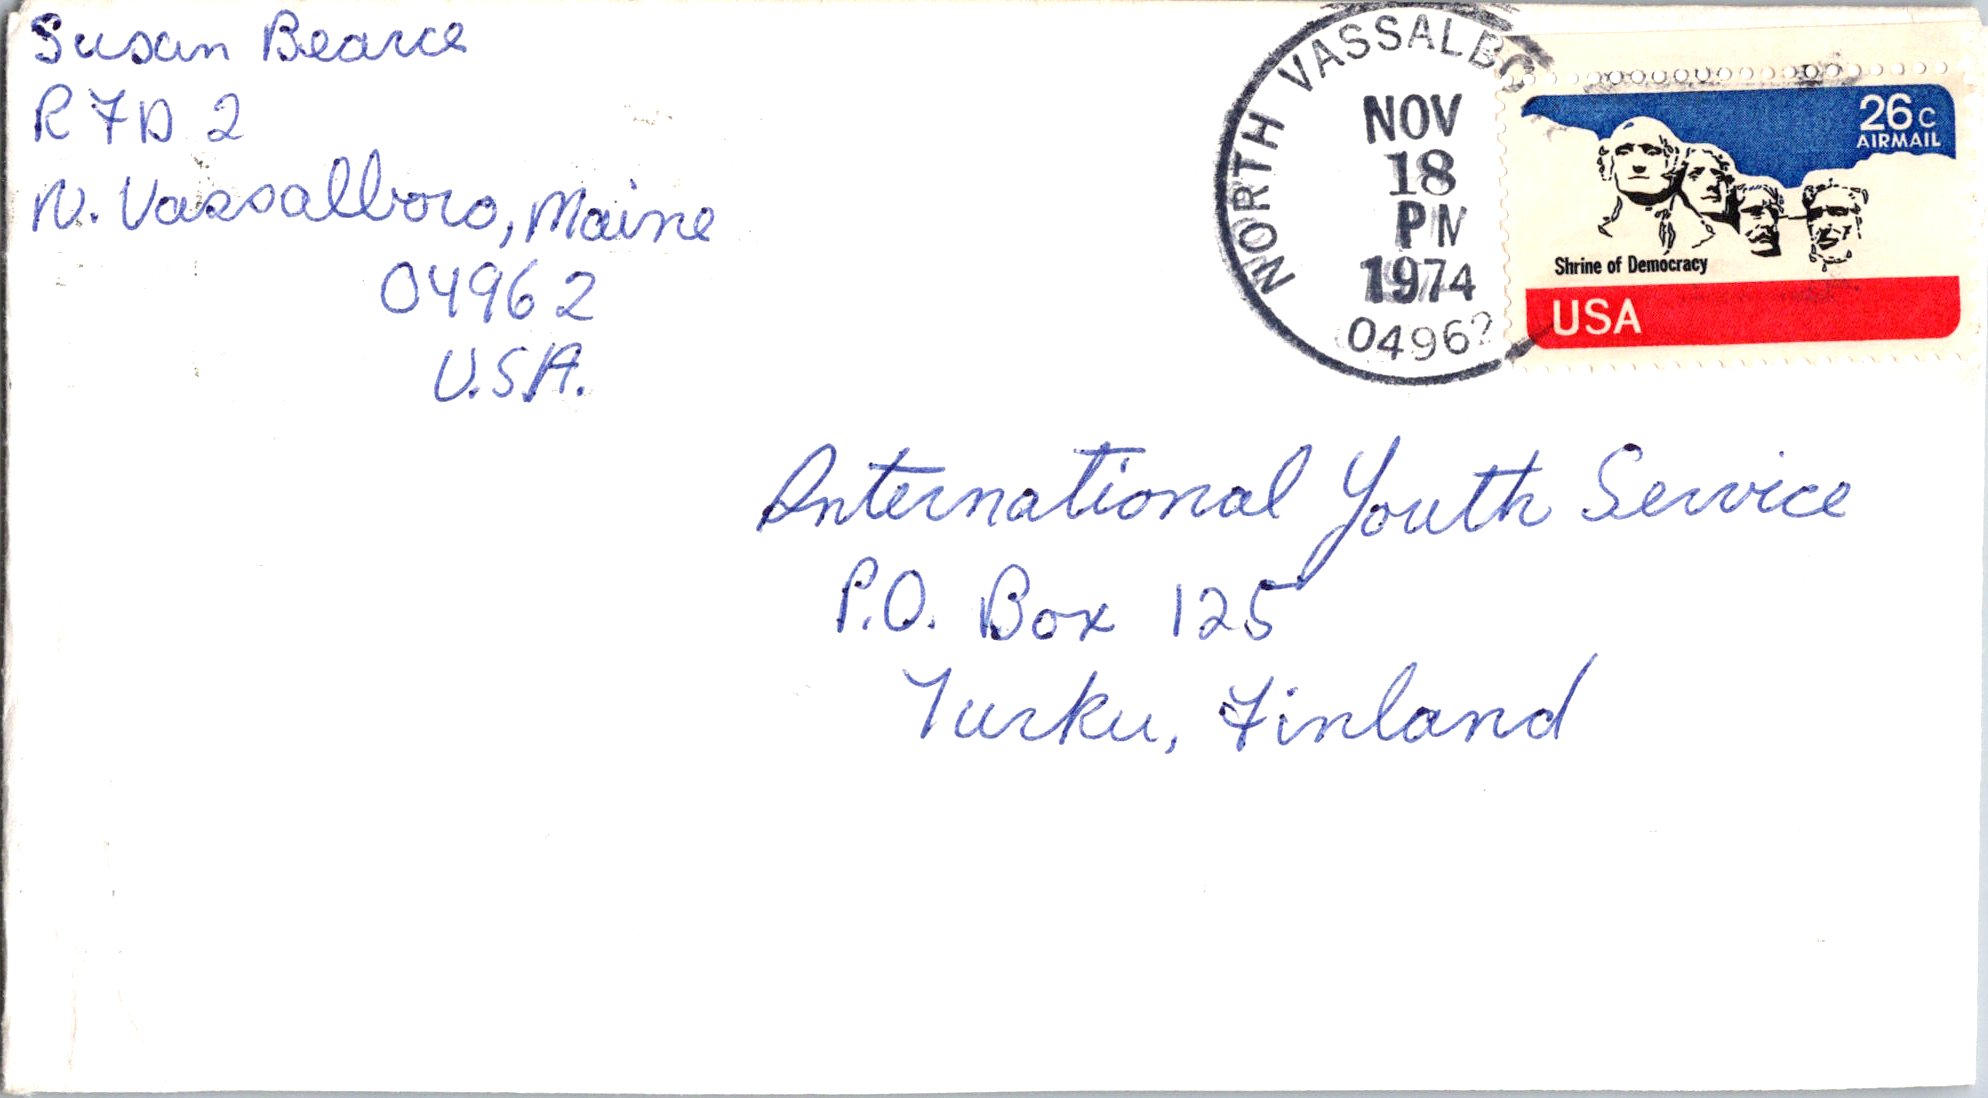 Susan Bearce
RFD 2
N. Vassalboro, Maine
04962
U.S.A.
NORTH VASSALBO
NOV
18
PM
1974
04962
26c
AIRMAIL
Shrine of Democracy
USA
International Youth Service
P.O. Box 125
Turku, Finland